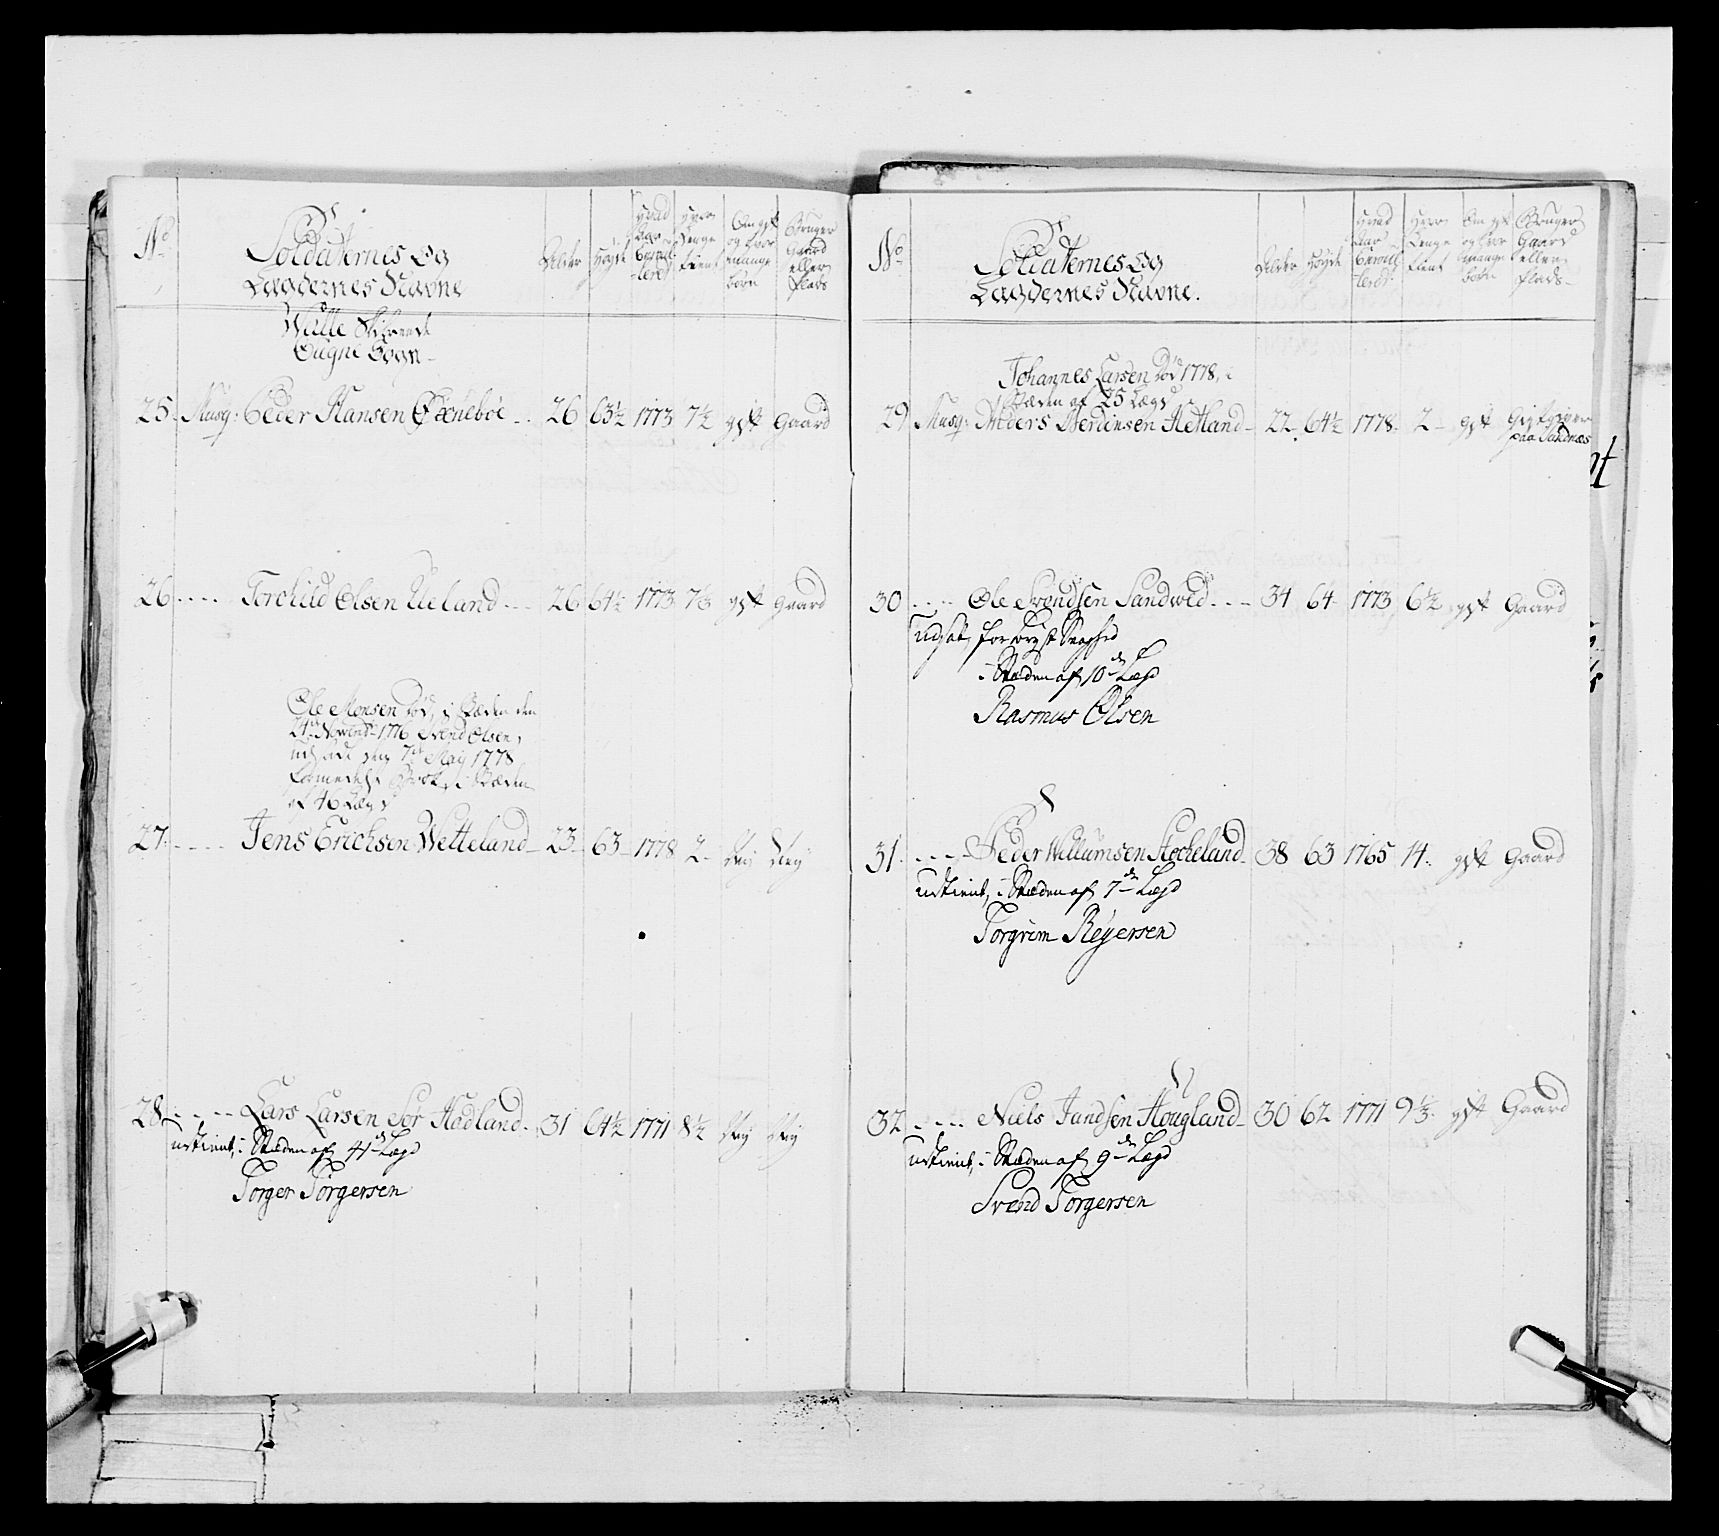 No
Soldaternes Og
Lægdernes Navne
Alder
Høyde
Hvad Aar Enroulleredt
Hvor Lenge tient
Om gift og hvor mange børn
Bruger Gaard eller Plads
Sogn
25. Musq: Peder Hansen Øxnebøe 26 63½ 1773 7½ gift Gaard
26 Torchild Olsen Ueland 26 64½ 1773 7½ gift Gaard
Ole Monsen død, i Stæden den
24de Novembr 1776 Svend Olsen,
udsadt den 7de Maij 1778
formedelst Brok, i Stæden
af 46 Lægd
27. Jens Erichsen Wetteland 23 63 1778 2 Nej Nej
28 Lars Larsen Sør Hadland 31 64½ 1771 8½ Nej Nej
udtient, i Stæden af 41de Lægd
Torger Torgersen
No
Soldaternes Og
Lægdernes Navne.
Alder
Høyde
Hvad Aar Enroulleredt
Hvor Lenge tient
Om gift og hvor mange børn
Bruger Gaard eller Plads
Johannes Larsen død 1778, i
Stæden af 25 Lægd
29 Musq: Anders Hetland 22 64½ 1778 2 gift
paa Sandnæs
30 Ole Svendsen Sandwed 34 64 1773 6½ gift Gaard
udsat, for bryst Svaghed
i Stæden af 10de Lægd
Rasmus Olsen
31 Peder Willumsen Stocheland 38 63 1765 14 gift Gaard
udtient, i Stæden af 7de Lægd
Torgrim Reyersen
32 Niels Jandsen Hougland 30 62 1771 9½ gift Gaard
udtient, i Stæden af 9de Lægd
Svend Torgersen